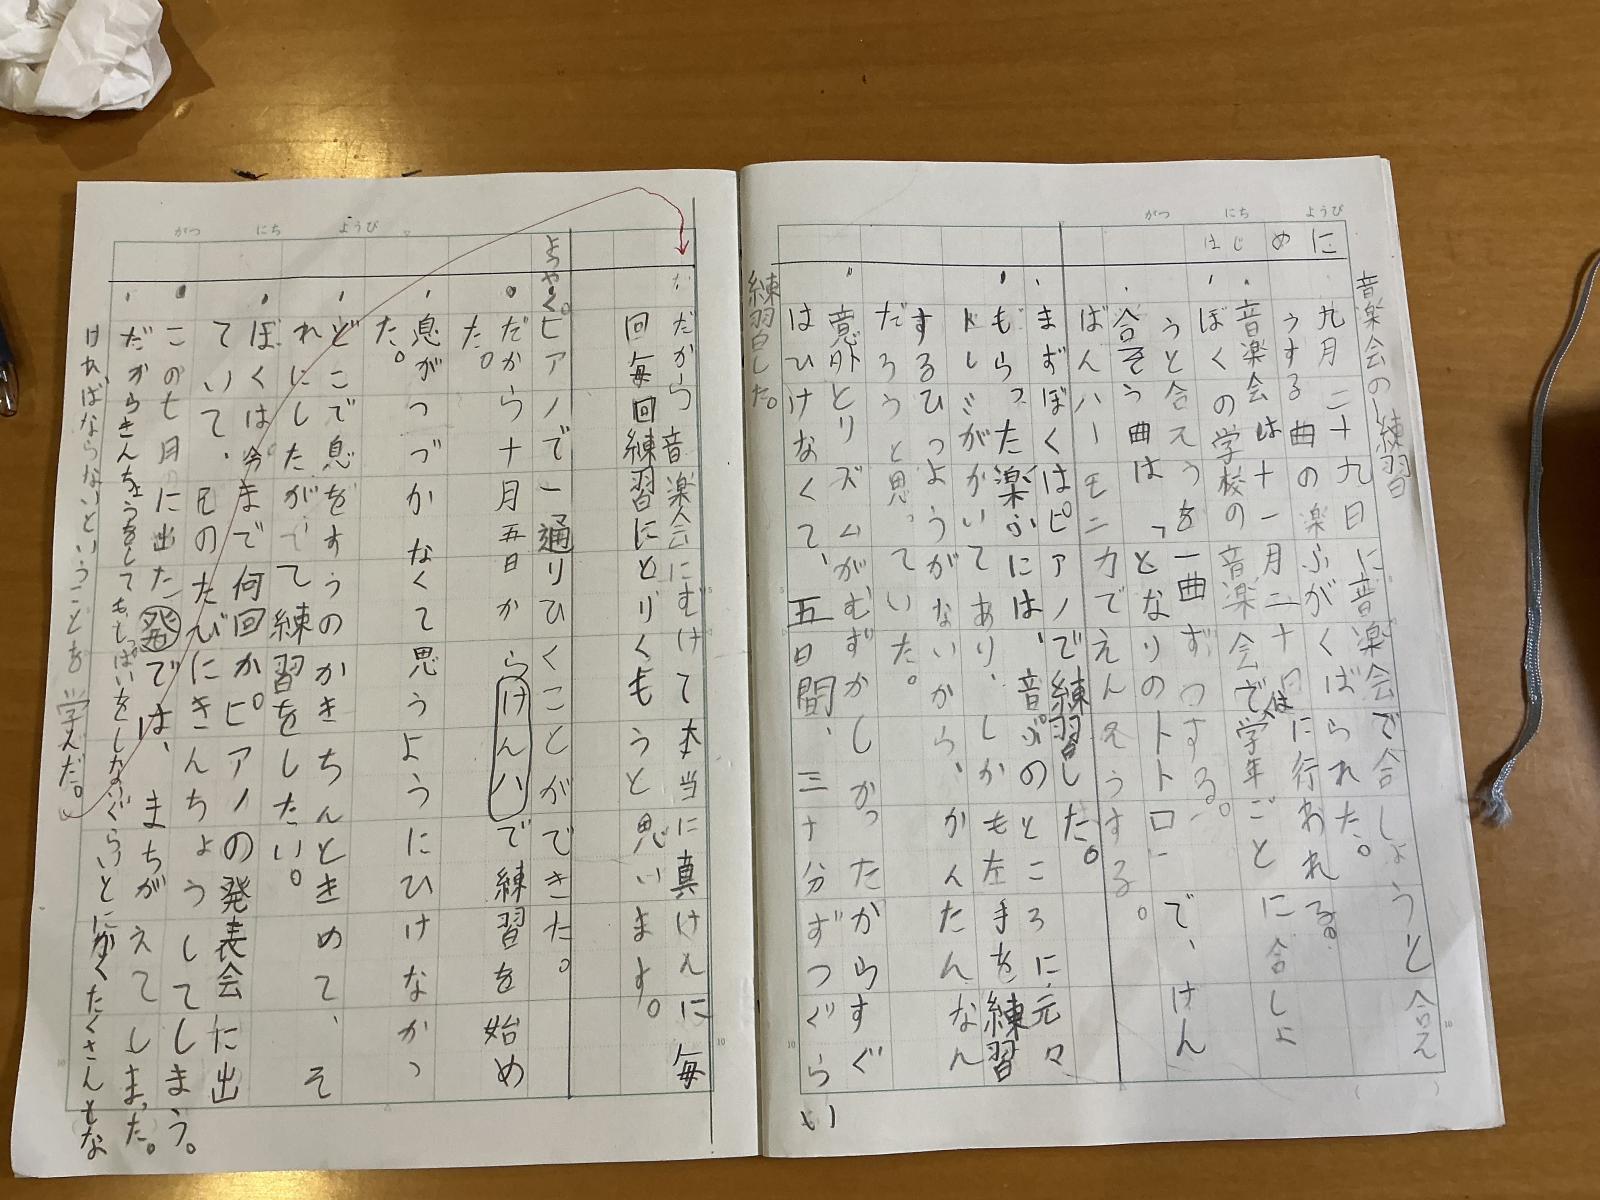 ようび
にち
がつ
はじめに
音楽会の練習
九月二十九日に音楽会で合しょうと合え
うする曲の楽ぷがくばられた。
・音楽会は十一月二十日に行われる。
・ぼくの学校の音楽会では学年ごとに合しょ
うと合そうを一曲ずつする。
・合そう曲は「となりのトトロ」で、けん
ばんハーモニカでえんそうする。
・まずぼくはピアノで練習した。
・もらった楽ふには、音ぷのところに元々
ドレミがかいてあり、しかも左手を練習
するひつようがないから、かんたんなん
だろうと思っていた。
・意外とリズムがむずかしかったからすぐ
はひけなくて、五日間、三十分ずつぐらい
練習した。
ようび
にち
がつ
だから音楽会にむけて本当に真けんに毎
回毎回練習にとりくもうと思います。
ようやく。ピアノで一通りひくことができた。
・だから十月五日からけんハで練習を始め
た。
・息がつづかなくて思うようにひけなかっ
た。
・どこで息をすうのかきちんときめて、そ
れにしたがって練習をしたい。
・ぼくは今まで何回かピアノの発表会に出
ていて、そのたびにきんちょうしてしまう。
この七月に出た発では、まちがえてしまった。
・だからきんちょうをしてももんぱいをしないぐらいとにかくたくさんもな
ければならないということを学んだ。